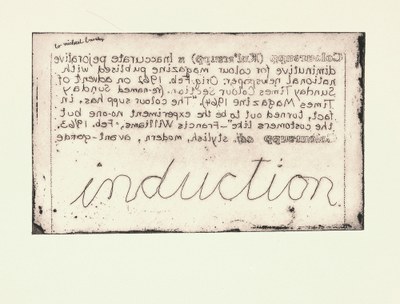 to michael
Coloursupp (Kul'ersupp) n Inaccurate pejorative
diminutive for colour magazine publised with
national newspaper. Orig. Feb. 1962 on advent of
Sunday Times Colour Section.. (re-named Sunday
Times Magazine 1964). "The colour supp has, in
fact, turned out to be the experiment no-one but
the customers like"-Francis Williams, Feb. 1963.
Coloursupp adj. stylish, modern, avant-garde
induction